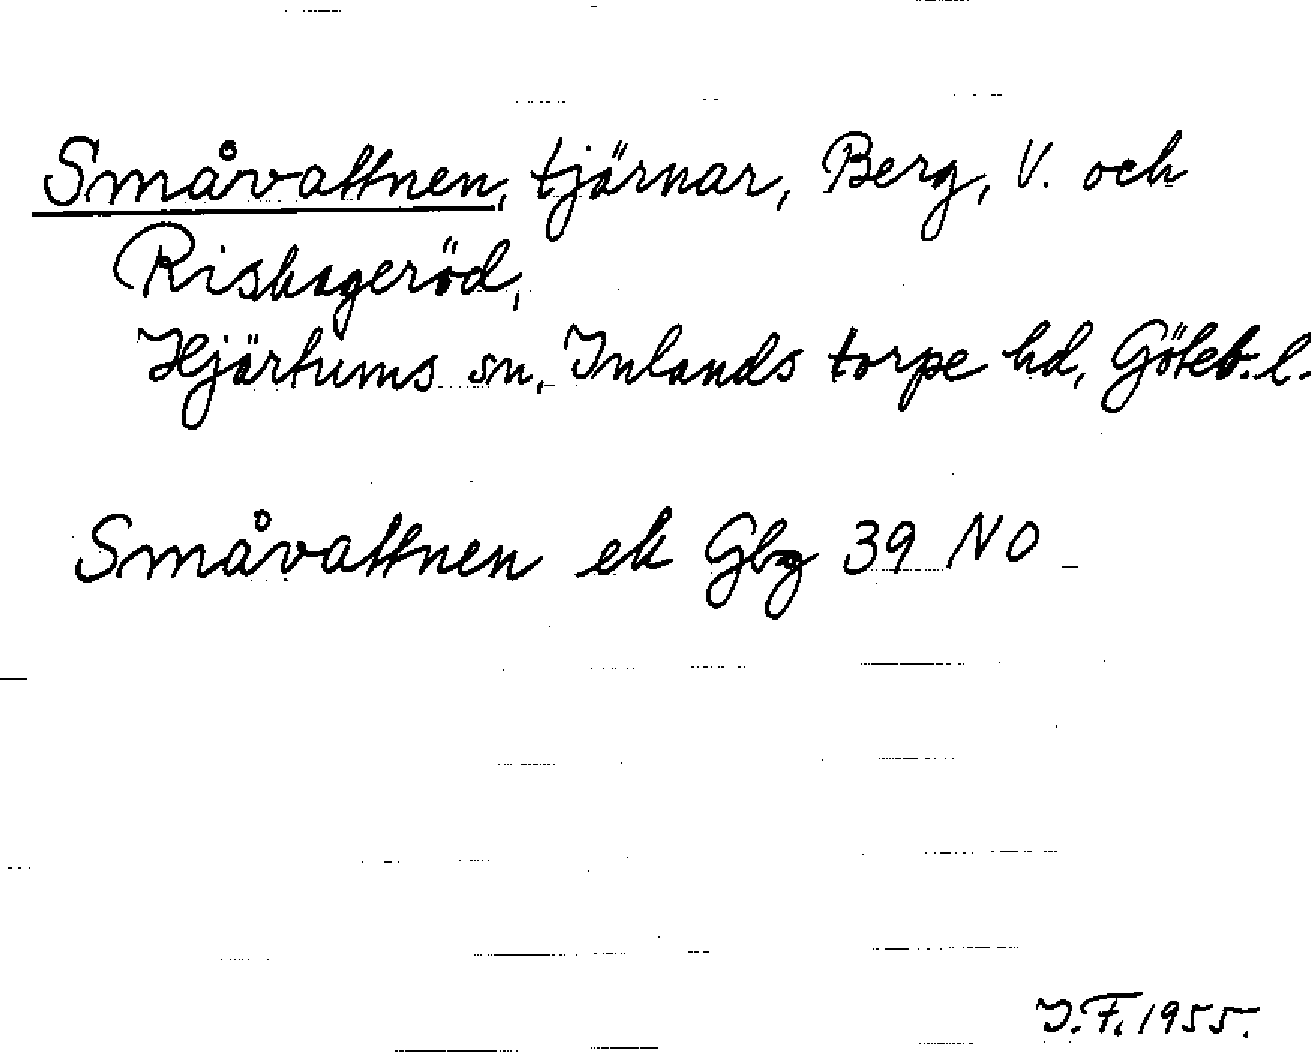 Småvattnen, tjärnar, Berg, V. och
Riskageröd,
Hjärtums sn, Inlands torpe hd, Göteb. l.
Småvattnen ek Gbg 39 NO
J. F. 1955.